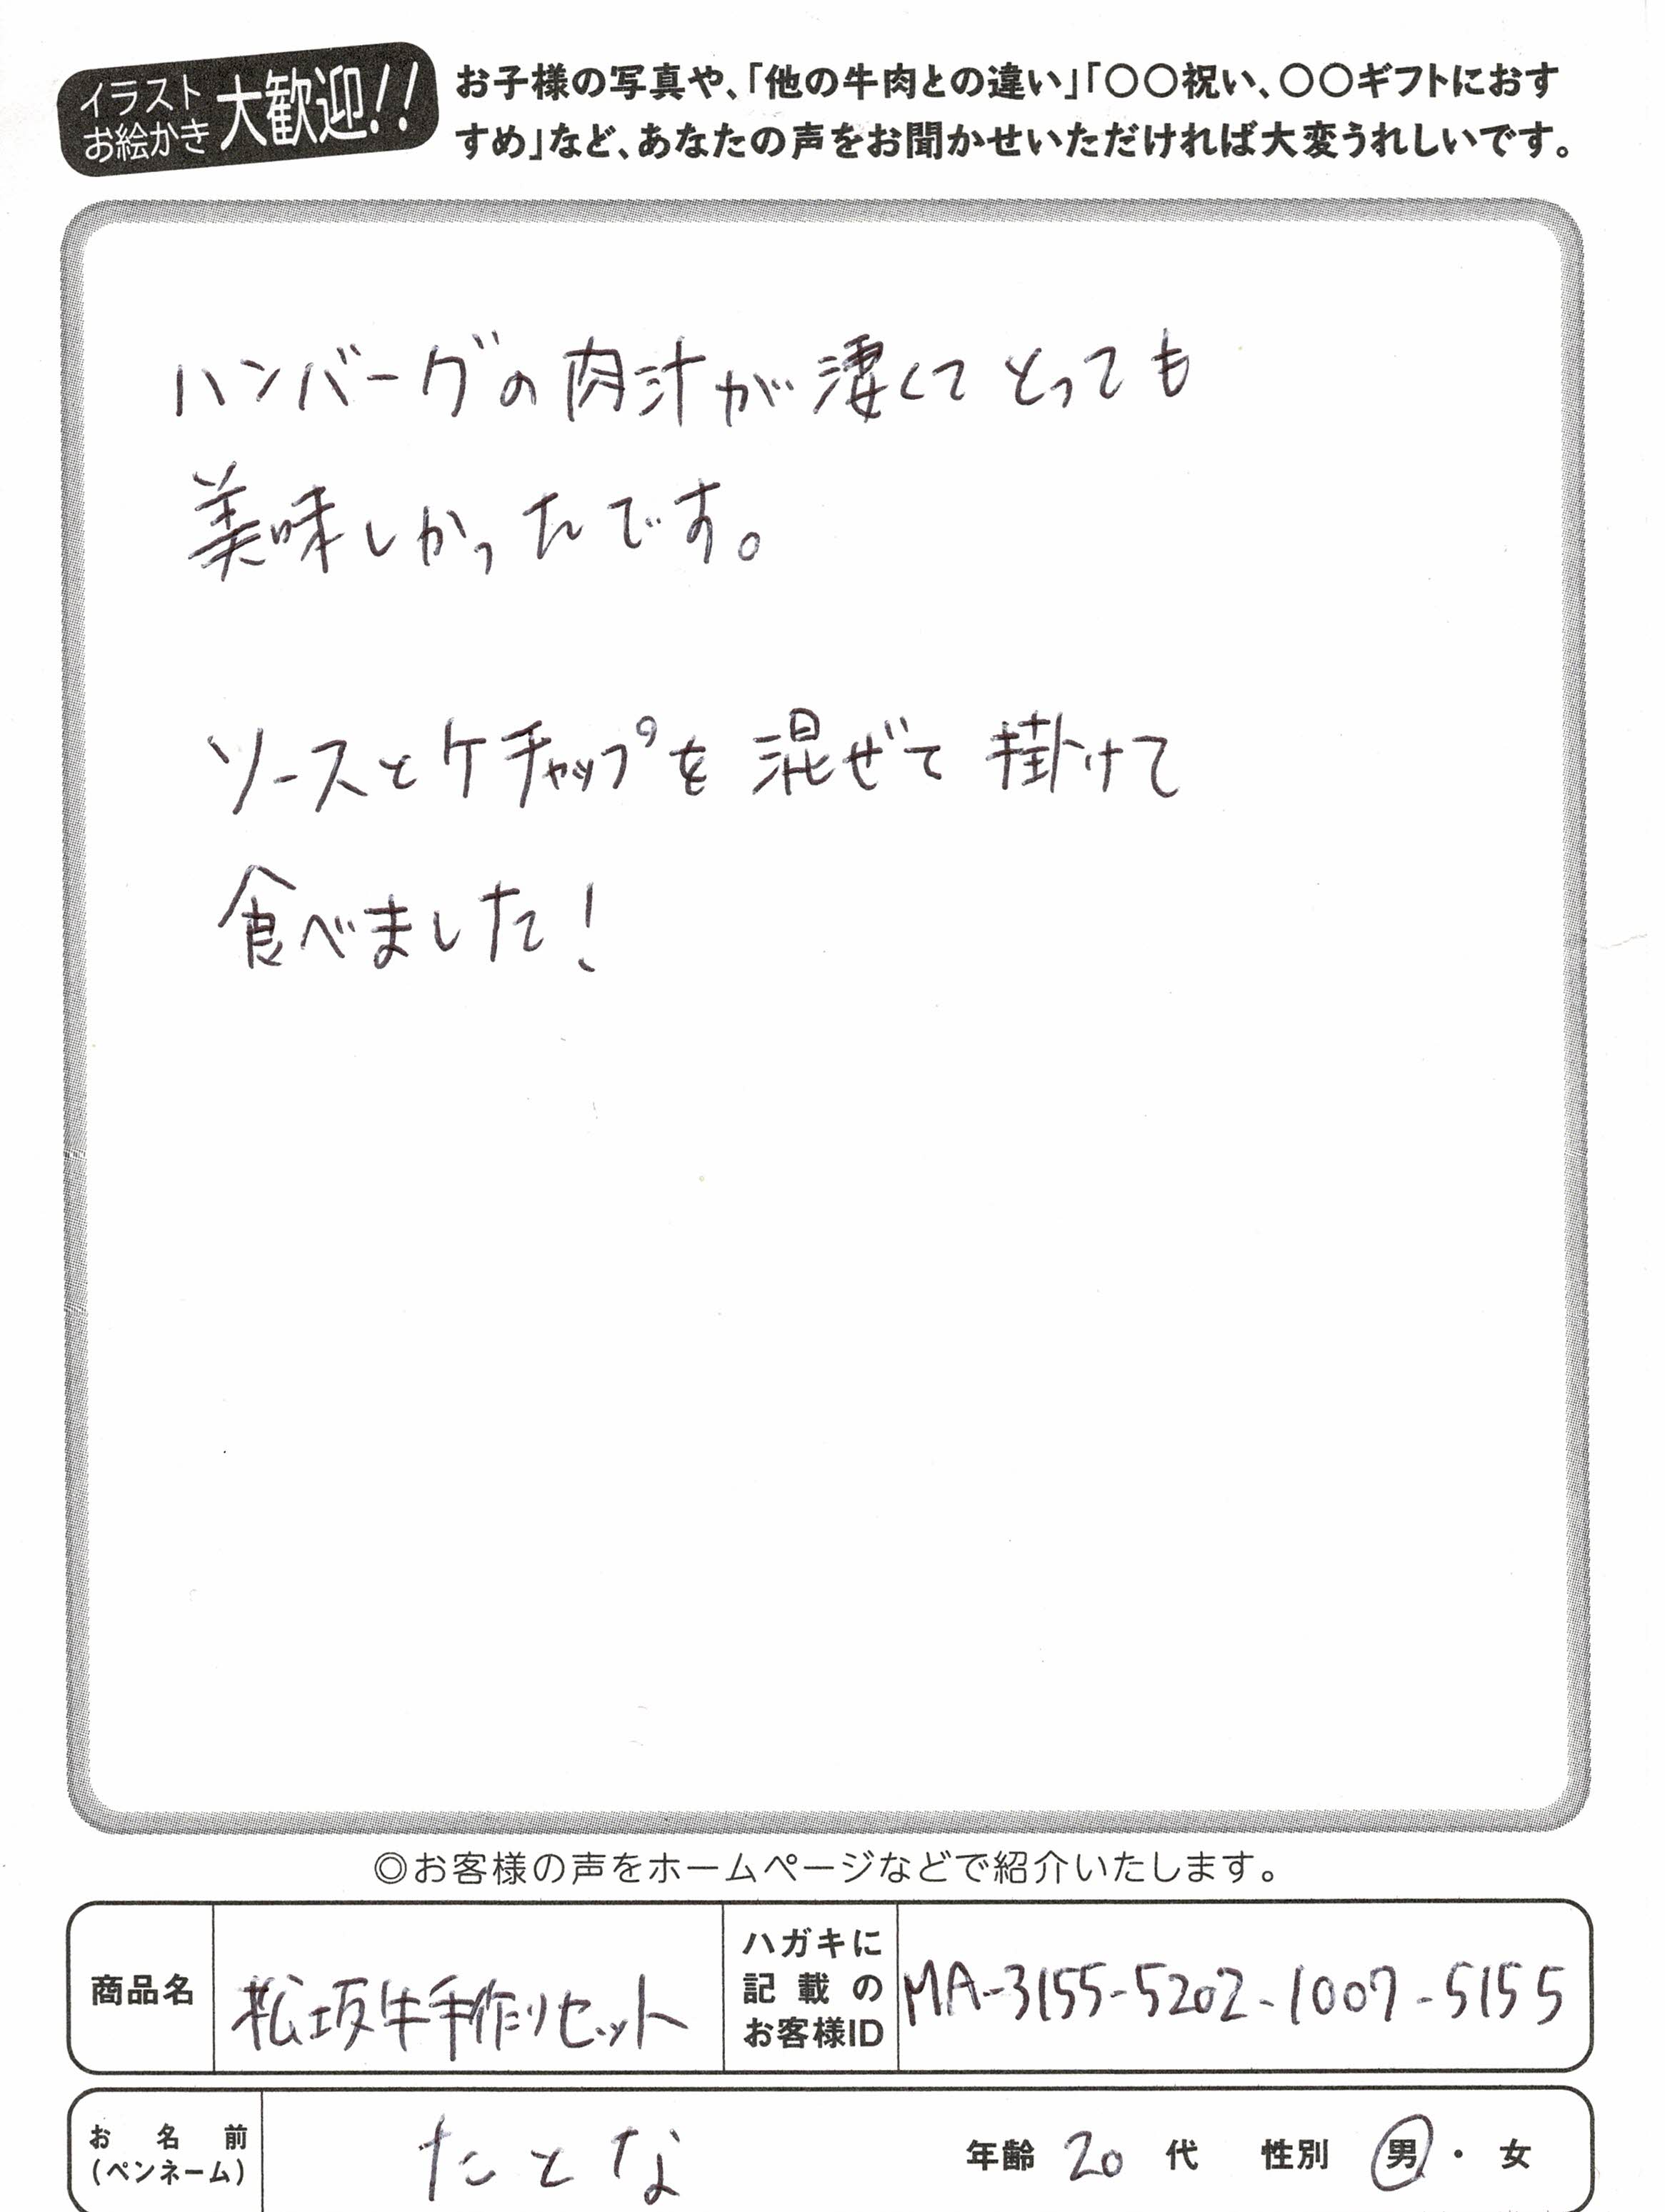 イラスト
お絵かき
大歓迎!!
お子様の写真や、「他の牛肉との違い」「〇〇祝い、〇〇ギフトにおす
すめ」など、あなたの声をお聞かせいただければ大変うれしいです。
ハンバーグの肉汁が凄くてとっても
美味しかったです。
ソースとケチャップを混ぜて掛けて
食べました!
◎お客様の声をホームページなどで紹介いたします。
商品名
松坂牛手作りセット
ハガキに
記載の
お客様ID
MA-3155-5202-1007-5155
お名前
(ペンネーム)
たとな
年齢 20 代 性別 男・女